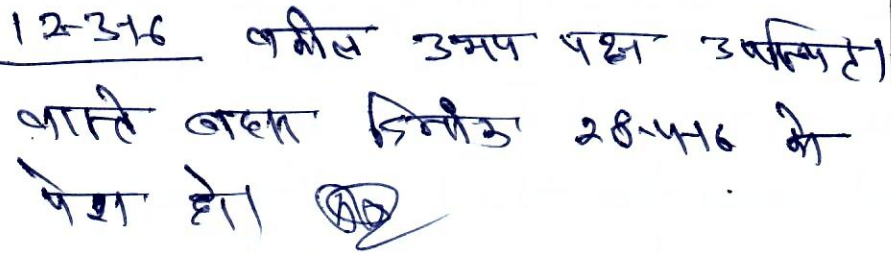 12-3-16 वकील उभय पक्ष उपस्थित है।
वास्ते बहस दिनांक 28-4-16 को
पेश हो।